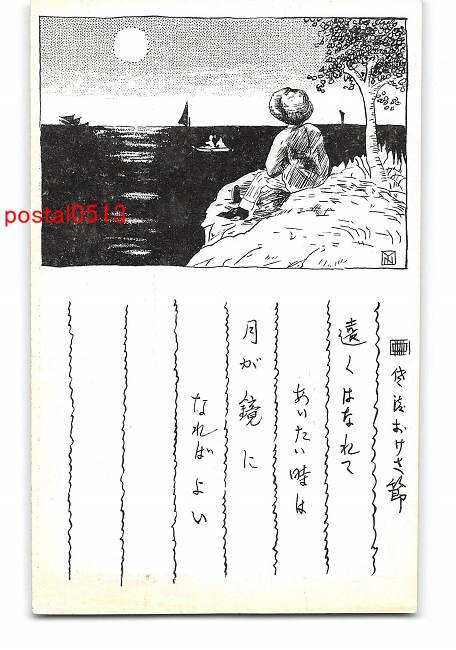 postal0513
おけさ節
遠くはなれて
あいたい時は
月が鏡に
なればよい